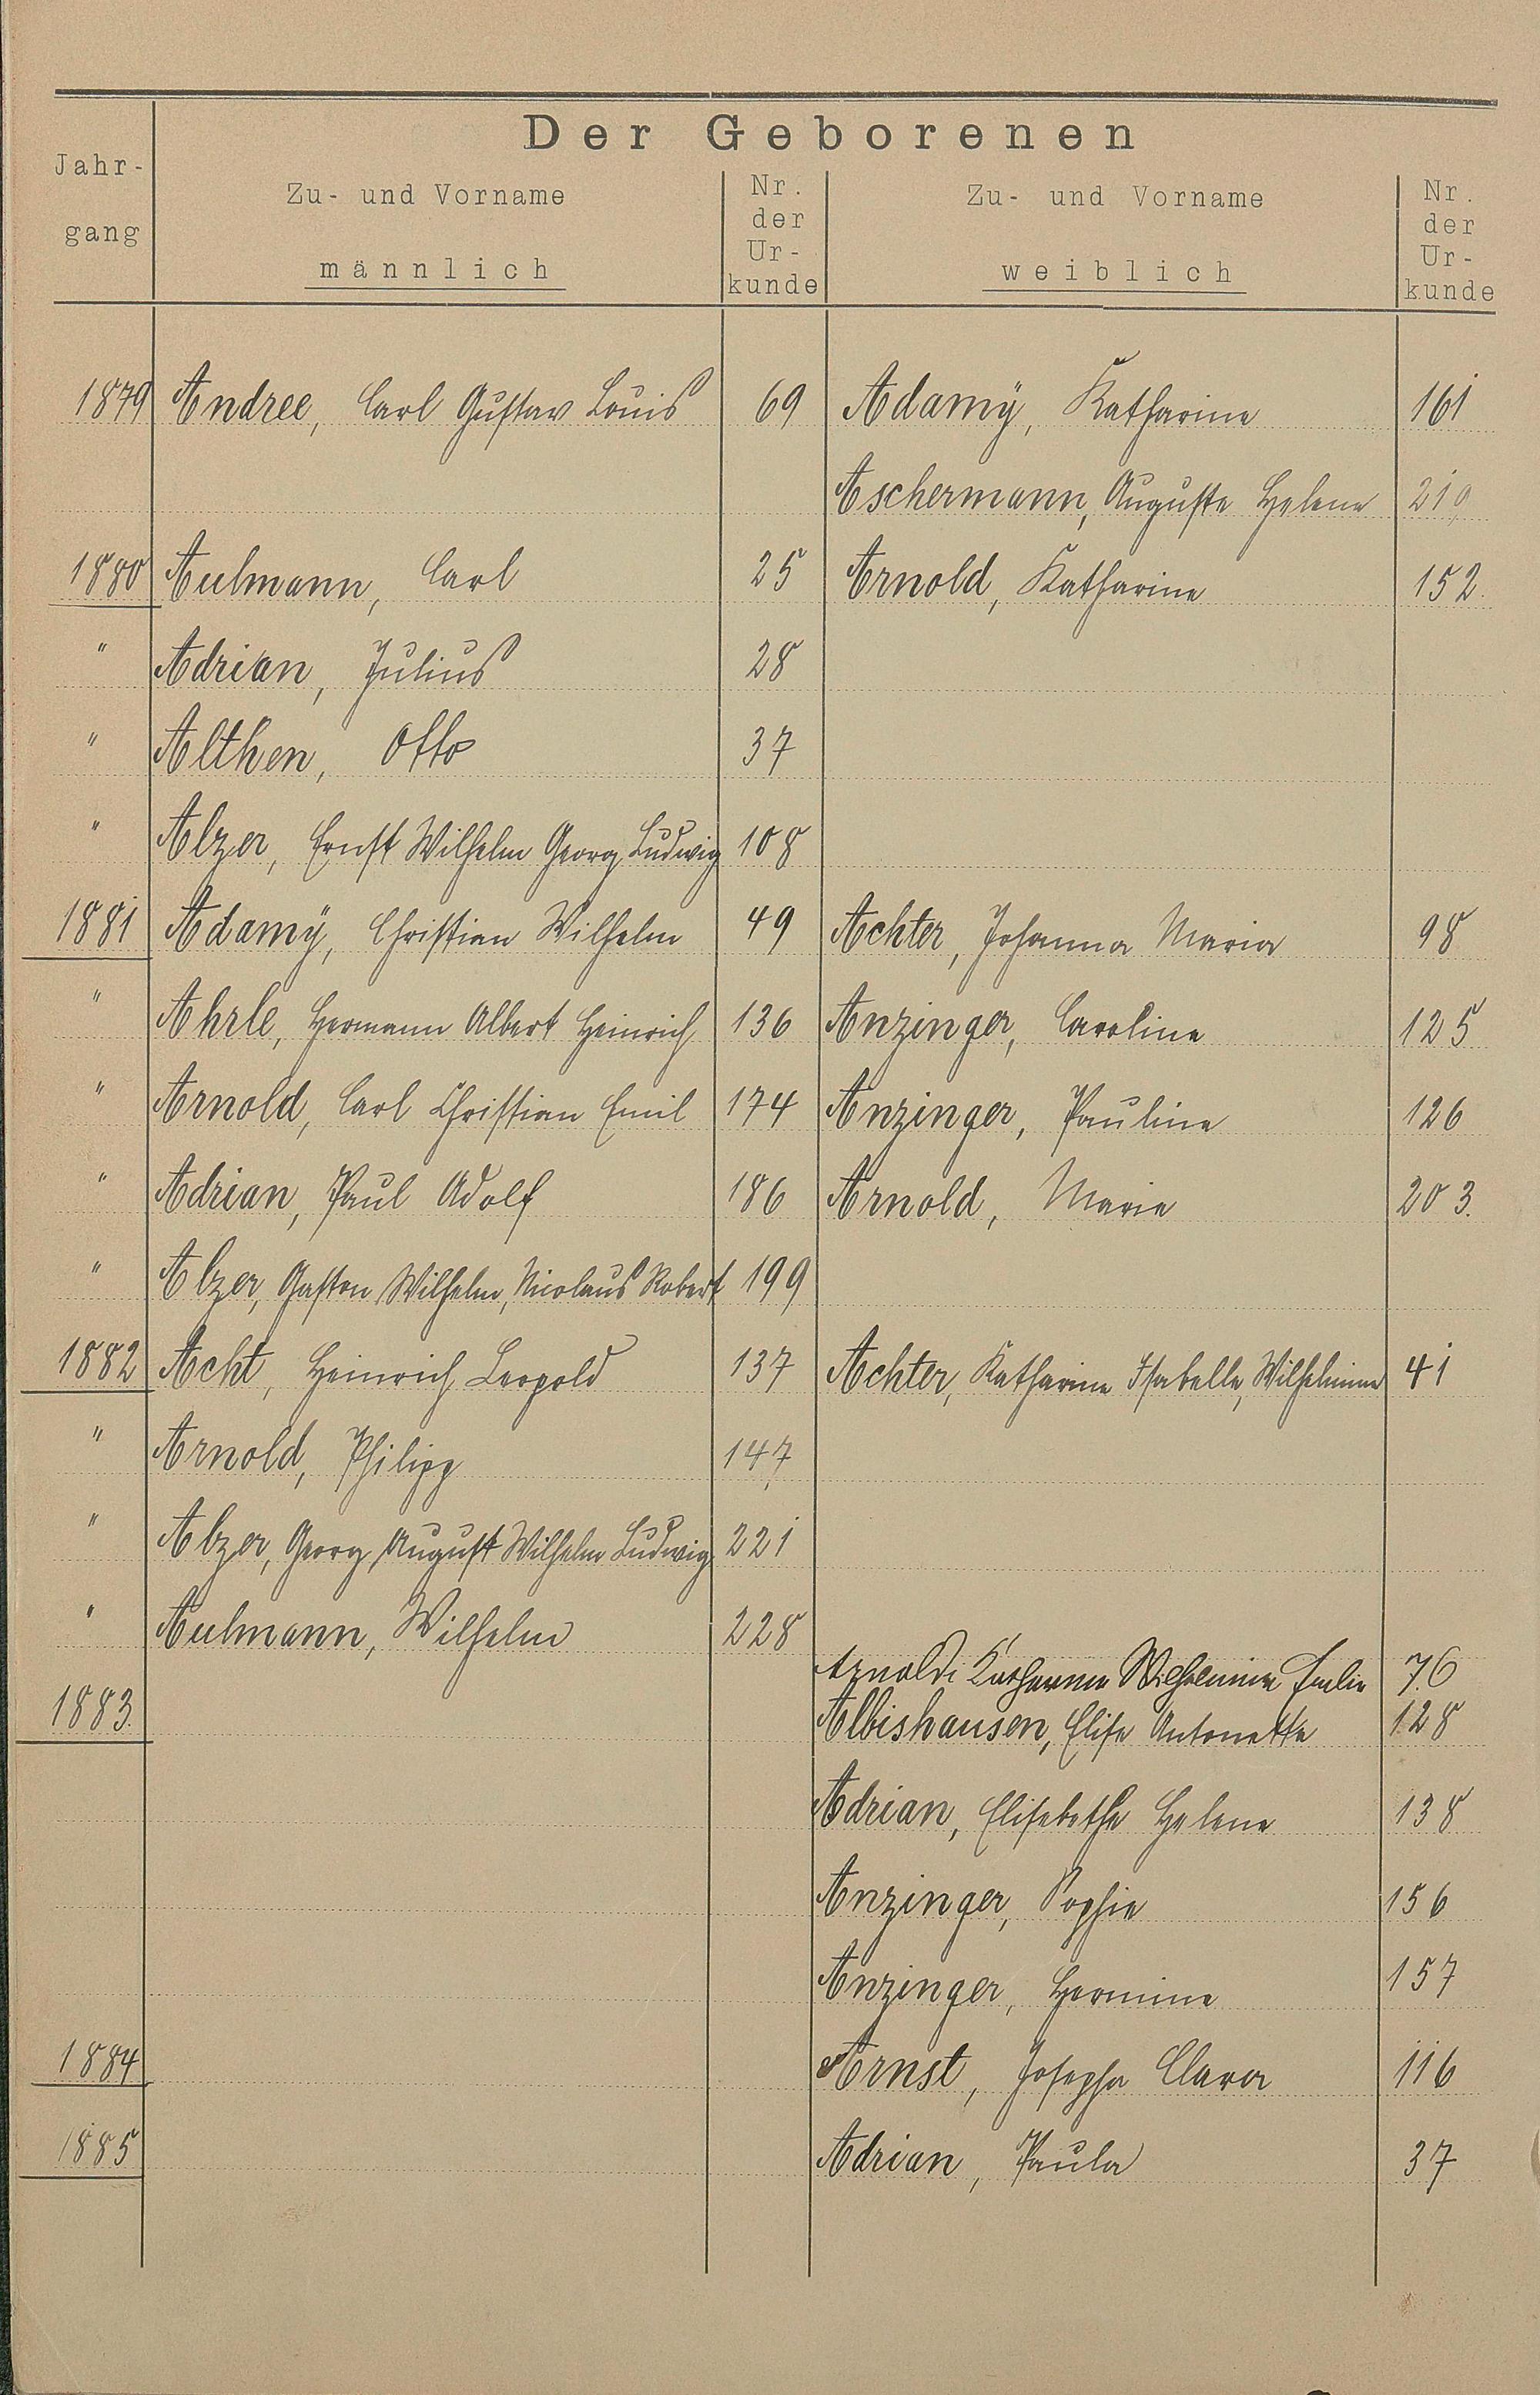 Der Geborenen
Jahr-
gang
Zu- und Vorname
männlich
Nr.
der
Ur-
kunde
Zu- und Vorname
weiblich
Nr.
der
Ur-
kunde
1879 Andree, Carl Gustav Louis 69 Adamÿ, Katharine 161
Aschermann, Auguste Helene 210
1880 Aulmann, Carl 25 Arnold, Katharine 152
" Adrian, Julius 28
" Althen, Otto 37
" Alzer, Ernst Wilhelm Georg Ludwig 108
1881 Adamÿ, Christian Wilhelm 49 Achter, Johanna Maria 98
" Ahrle, Hermann Albert Heinrich 136 Anzinger, Caroline 125
" Arnold, Carl Christian Emil 174 Anzinger, Pauline 126
" Adrian, Paul Adolf 186 Arnold, Marie 203.
" Alzer, Gaston Wilhelm, Nicolaus Robert 199
1882 Acht, Heinrich Leopold 137 Achter, Katharine Isabelle, Wilhelmine 41
" Arnold, Philipp 147
" Alzer, Georg August Wilhelm Ludwig 221
" Aulmann, Wilhelm 228
Arnoldi Katharina Wilhelmine Emilie 76
1883. Albishausen, Elise Antonette 128
Adrian, Elisabetha Helene 138
Anzinger, Sophie 156
Anzinger, Hermine 157
1884 Arnst, Josepha Clara 116
1885 Adrian, Paula 37